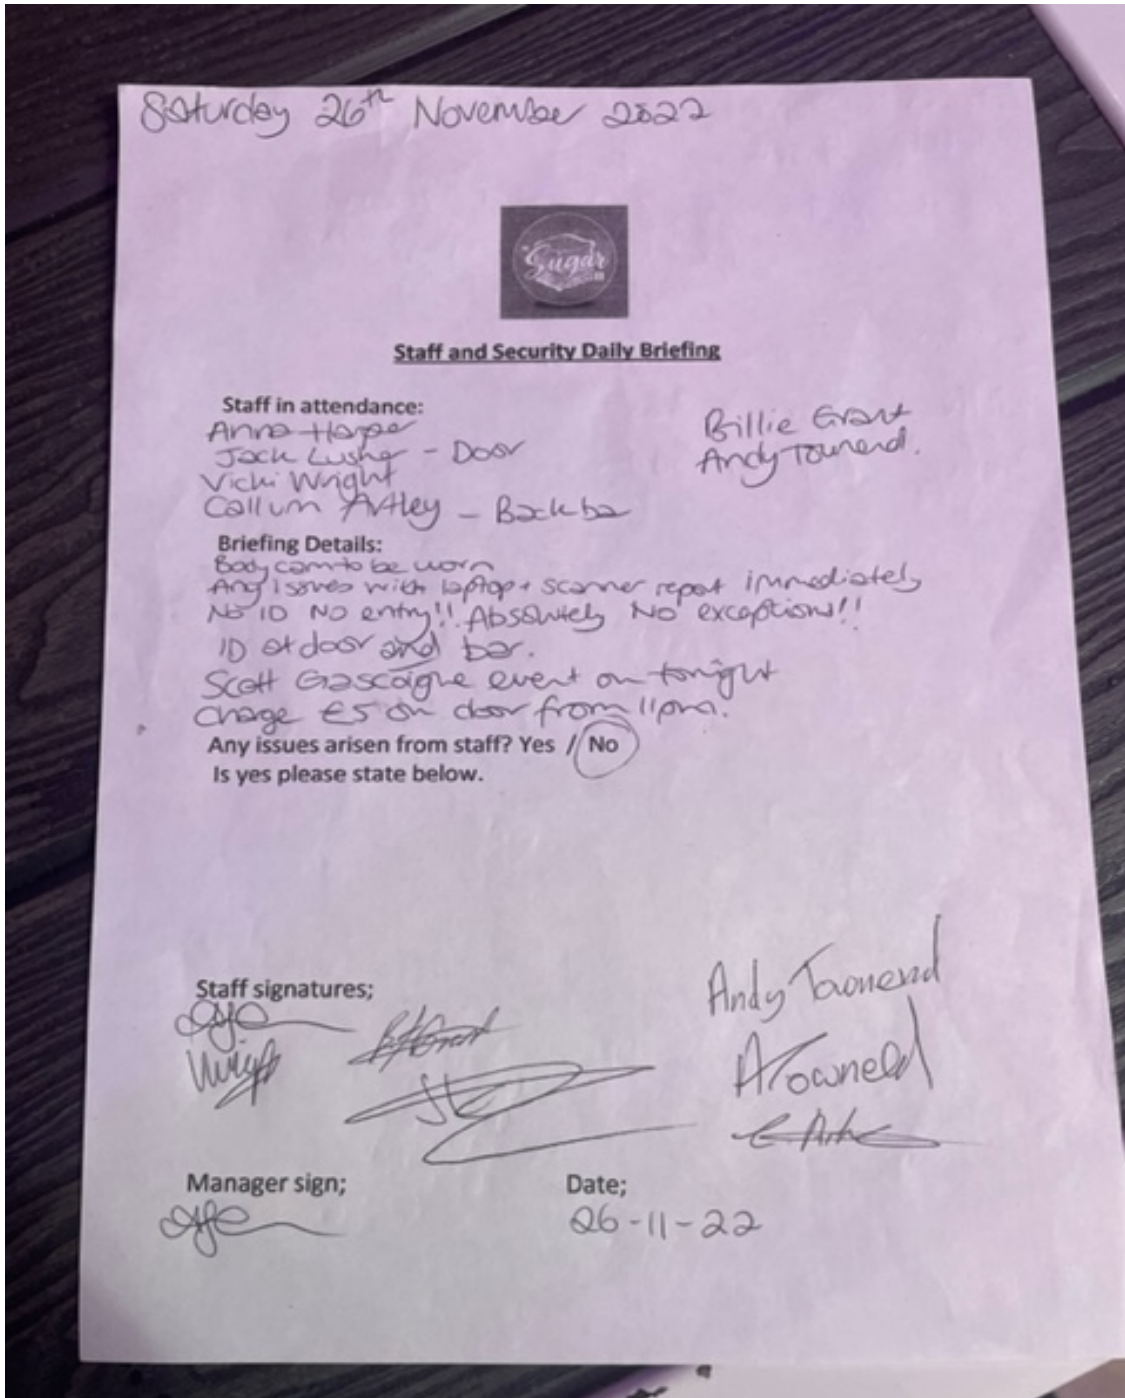 Saturday 26th November 2022
Sugar
Staff and Security Daily Briefing
Staff in attendance:
Anna Harper
Jack Lusher - Door
Vicki Wright
Callum Artley - Back bar
Billie Grant
Andy Townend.
Briefing Details:
Body cam to be worn
Any issues with laptop + scanner report immediately
No ID No entry!! Absolutely No exceptions!!
ID at door and bar.
Scott Gascoigne event on tonight
Charge £5 on door from 11pm.
Any issues arisen from staff? Yes / No
Is yes please state below.
Staff signatures;
Andy Townend
Manager sign;
Date;
26-11-22